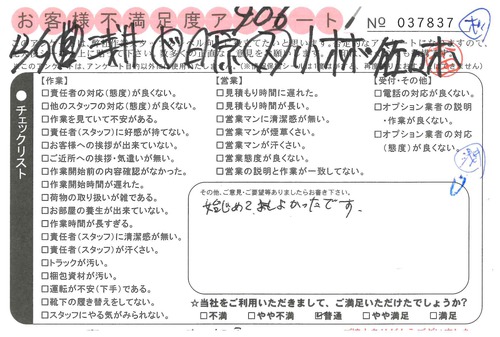 お客様不満足度アンケート
406
№ 037837
チェックリスト
【作業】
□責任者の対応(態度)が良くない。
□他のスタッフの対応(態度)が良くない。
□作業を見ていて不安がある。
□責任者(スタッフ)に好感が持てない。
□お客様への挨拶が出来ていない。
□ご近所への挨拶・気遣いが無い。
□作業開始前の内容確認がなかった。
□作業開始時間が遅れた。
□荷物の取り扱いが雑である。
□お部屋の養生が出来ていない。
□作業時間が長すぎる。
□責任者(スタッフ)に清潔感が無い。
□責任者(スタッフ)が汗くさい。
□トラックが汚い。
□梱包資材が汚い。
□運転が不安(下手)である。
□靴下の履き替えをしてない。
□スタッフにやる気がみられない。
【営業】
□見積もり時間に遅れた。
□見積もり時間が長い。
□営業マンに清潔感が無い。
□営業マンが煙草くさい。
□営業マンが汗くさい。
□営業態度が良くない。
□営業の説明と作業が一致してない。
【受付・その他】
□電話の対応が良くない。
□オプション業者の説明
・作業が良くない。
□オプション業者の対応
(態度)が良くない。
その他、ご意見・ご要望等ありましたらお書き下さい。
始じめて、おしよかったです。
☆当社をご利用いただきまして、ご満足いただけたでしょうか?
□不満 □やや不満 □普通 □やや満足 □満足